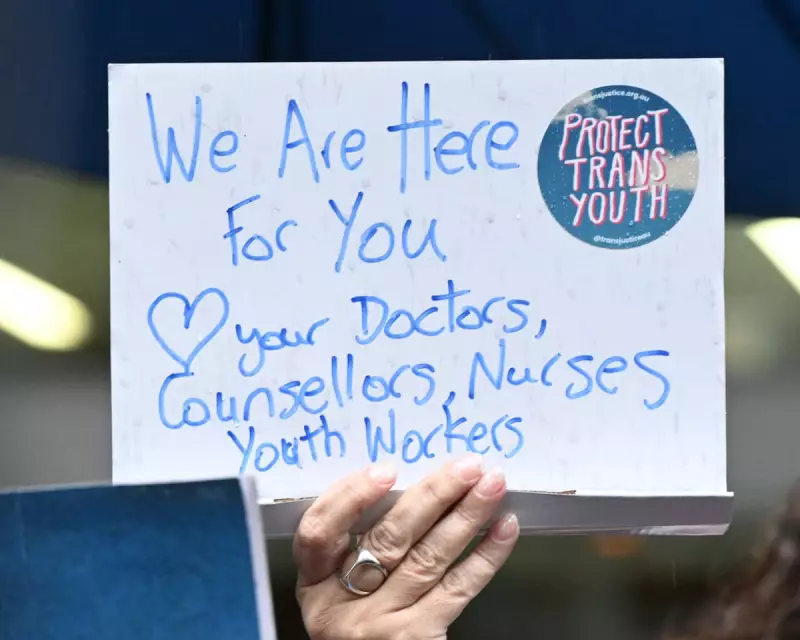 We Are Here
For You
♡ your Doctors,
Counsellors, Nurses
Youth Workers
transjustice.org.au
PROTECT
TRANS
YOUTH